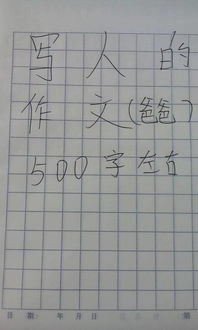 写人的
作文(爸爸)
500字左右
日期: 年 月 日 第